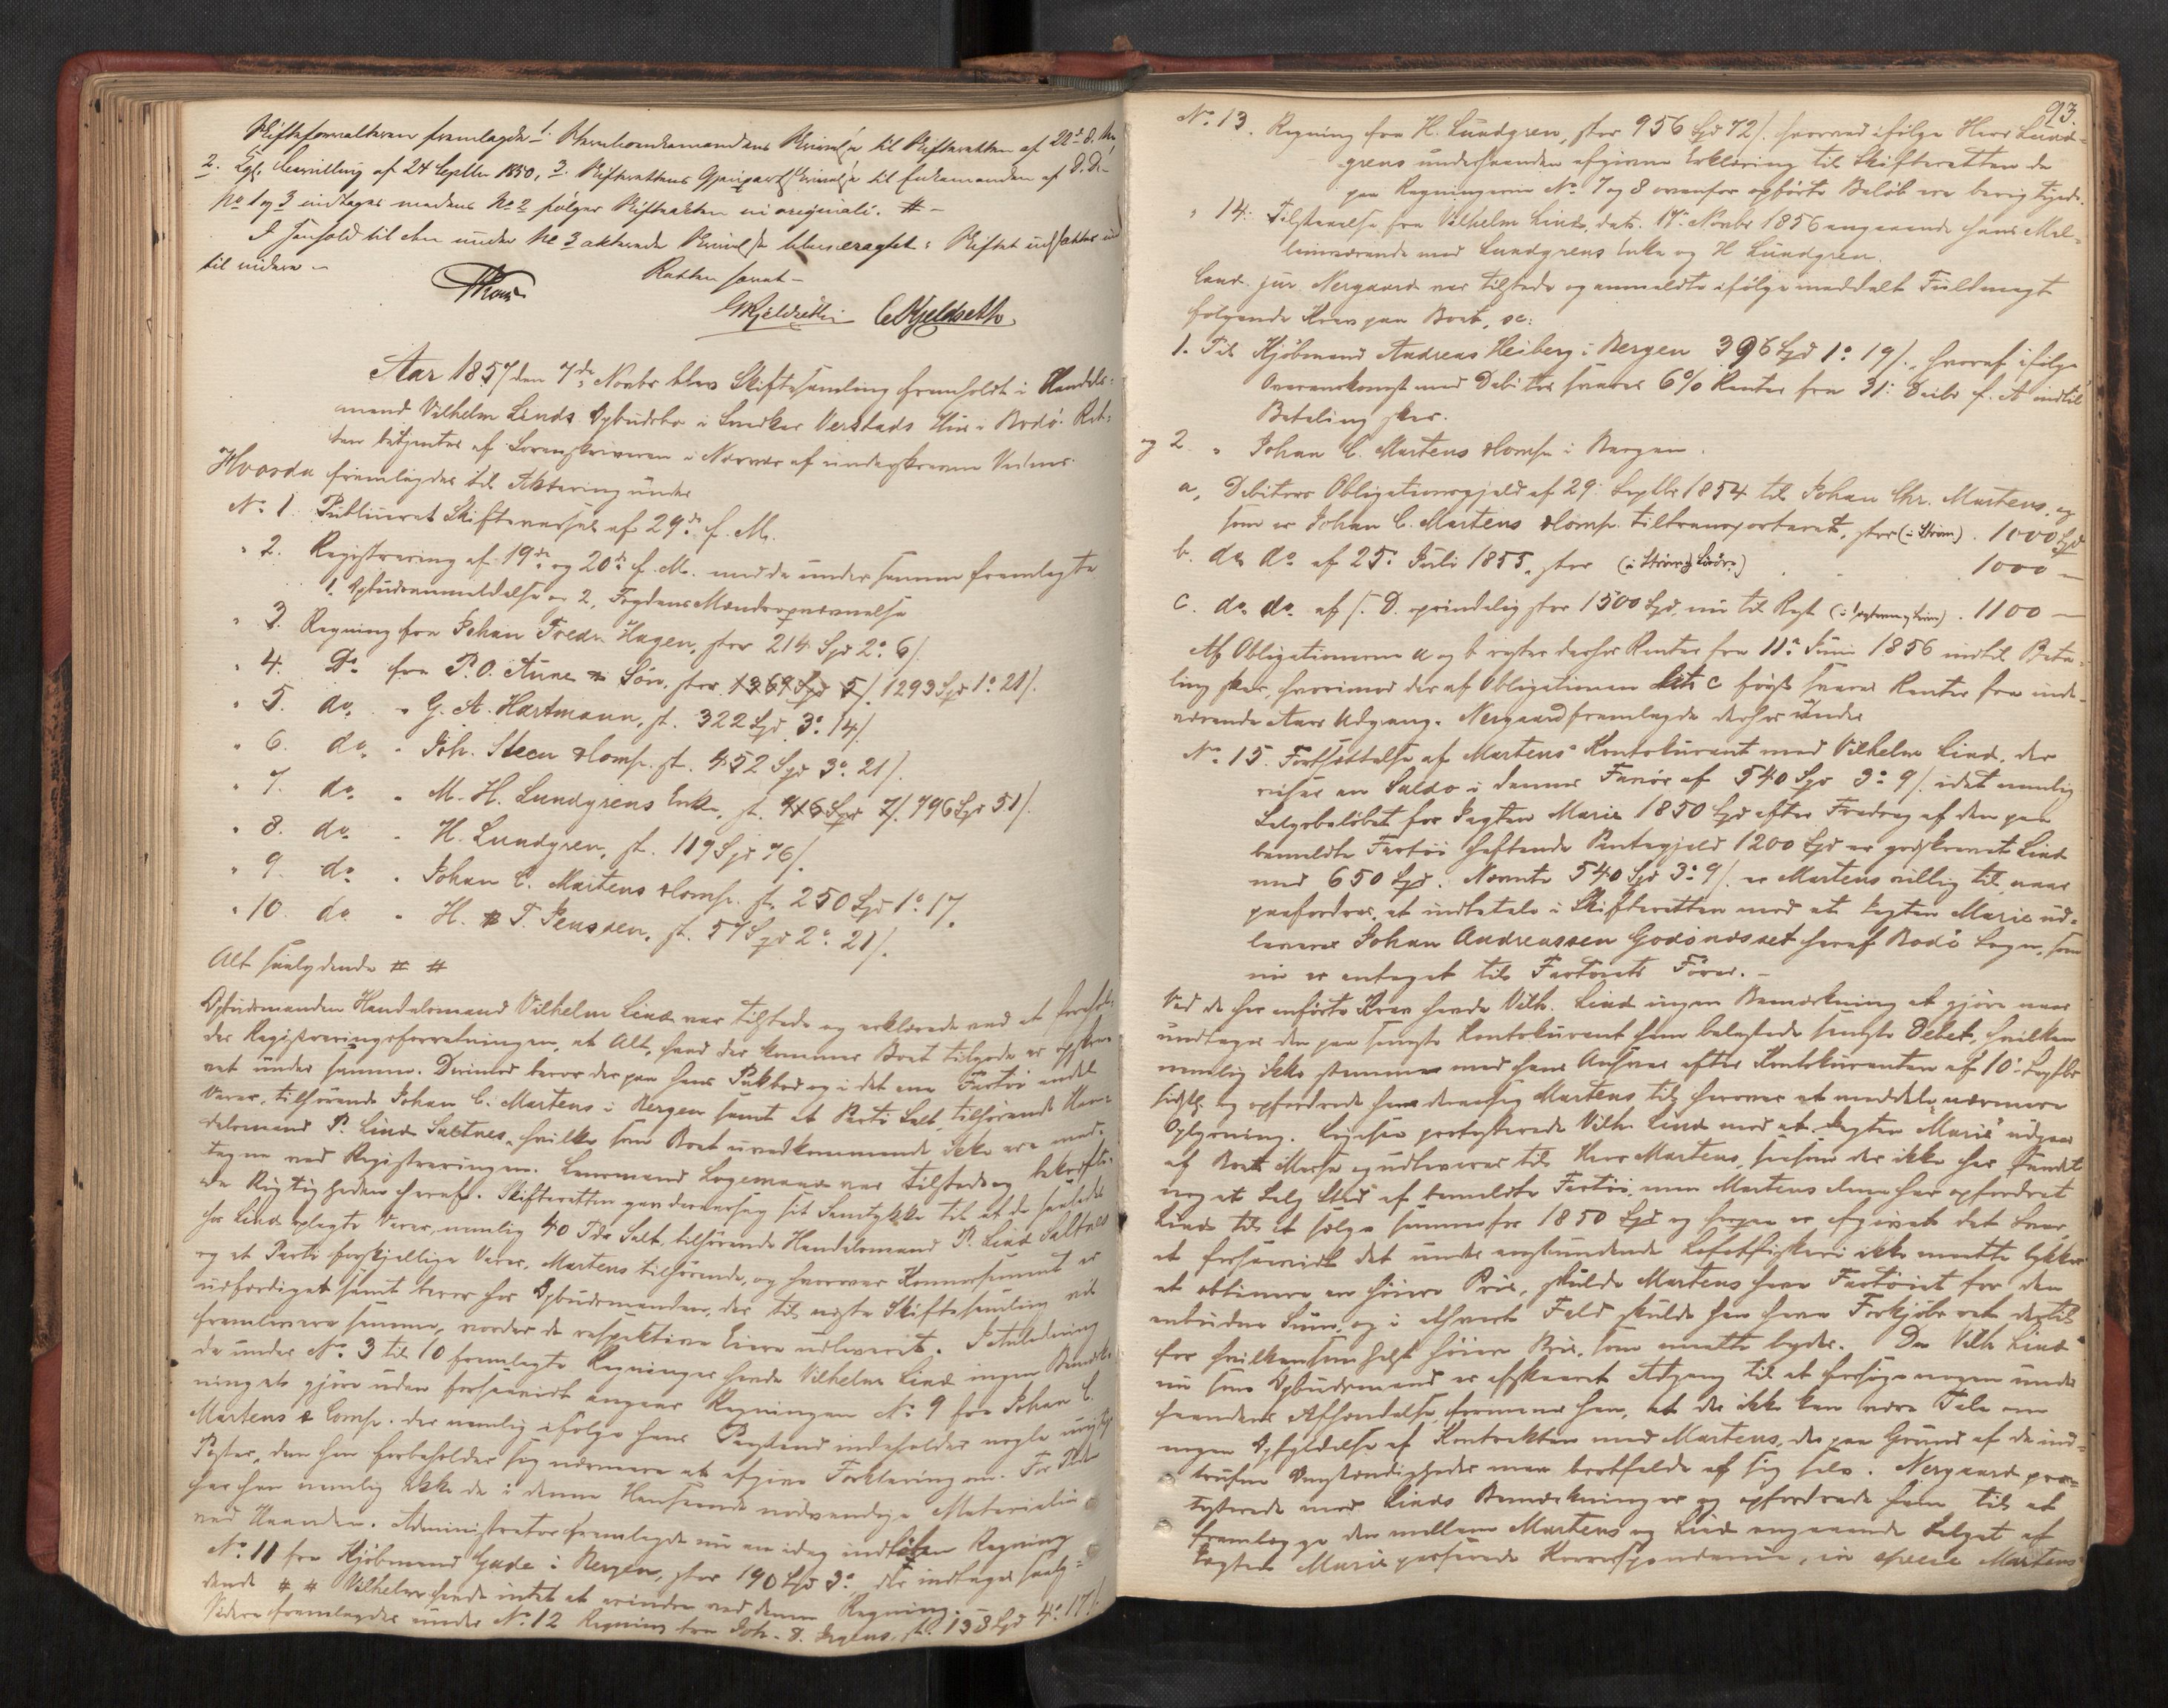 Skifteforvalteren fremlagde 1. Skrivelse til Skifteretten af 22de d. M.,
2. Kgl. Bevilling af 24 Septbr 1850, 3. Skifterettens Skrivelse til af D. D. -
No 1 og 3 indtages medens No 2 følger Skifteakten in originali. # -
I Henhold til den under No 3 akterede Skrivelse blev eragtet: Skiftet udsættes ind
til videre -
Retten hævet -
GKjeldseth CKjeldseth
Aar 1857 den 7de Novbr blev Skiftesamling fremholdt i Handels-
mand Vilhelm Linds Opbudsbo i Snedker Verstads Hus i Bodø. Ret-
ten betjentes af Sorenskriveren i Nærvær af underskrevne Vidner.
Hvorda fremlagdes til Aktering under
No 1. Publiceret Skiftevarsel af 29de f. M.
" 2. Registrering af 19de og 20de f. M. med de under samme fremlagte
1, Opbudsanmeldelse og 2, Fogdens Mændsopnævnelse
" 3. Regning fra Johan Fredr. Hagen, stor 214 Spd 2o 6/.
" 4. Do fra P. O. Aune & Søn, stor 1369 Spd 5/. 1293 Spd 1o 21/.
" 5. do. " G. A. Hartmann, st. 322 Spd 3o 14/.
" 6. do. " Joh. Steen & Comp. st. 452 Spd 3o 21/.
" 7. do. " M. H. Lundgrens Enke, st. 916 Spd 7/. 796 Spd 51/.
" 8. do. " H. Lundgren, st. 119 Spd 76/.
" 9. do. " Johan C. Martens & Comp. st. 250 Spd 1o 17.
" 10. do. " H. & T. Jenssen, st. 57 Spd 2o 21/.
Alt saalydende # #
Opbudsmanden Handelsmand Vilhelm Lind var tilstede og erklærede ved at
der Registreringsforretningen, at Alt, hvad der kommer Boet tilgode er opskre-
vet under samme. Derimod beror der paa hans Pakbod og i det ene Fartøi endel
Varer, tilhørende Johan C. Martens i Bergen samt et Parti Salt, tilhørende Han-
delsmand P. Lind Saltnes, hvilke som Boet uvedkommende ikke ere med-
tagne ved Registreringen. Lensmand Logemann var tilstede og bekræfte-
de Rigtigheden heraf. Skifteretten gav derefter sit Samtykke til at de saaledes
hos Lind oplagte Varer, nemlig 40 Tdr Salt, tilhørende Handelsmand P. Lind Saltnes
og et Parti forskjellige Varer, Martens tilhørende, og hvorover Konnossement er
udfærdiget samt beror hos Opbudsmanden, der til næste Skiftesamling vil
fremlevere samme, vorder de respektive Eiere udleveret. I Anledning
de under No 3 til 10 fremlagte Regninger havde Vilhelm Lind ingen Bemærk-
ning at gjøre uden forsaavidt angaar Regningen No 9 fra Johan C.
Martens & Comp. der nemlig ifølge hans Paastand indeholder nogle urigtige
Poster, dem han forbeholder sig nærmere at afgive Forklaring om. For Tiden
har han nemlig ikke de i denne Henseende nødvendige Materialier
ved Haanden. Administrator fremlagde nu en idag indløben Regning
No 11 fra Kjøbmand Gade i Bergen, stor 190 Spd 3o, der indtages saaly-
dende # # Vilhelm havde intet at erindre ved denne Regning.
Videre fremlagdes under No 12 Regning fra Joh. D. st. 138 Spd 4o 17/.
93.
No 13. Regning fra H. Lundgren, stor 956 Spd 72/. hvorved ifølge Herr Lund-
grens underhaanden afgivne Erklæring til Skifteretten de
paa Regningerne No 7 og 8 ovenfor opførte Beløb ere berigtigede.
" 14. Tilstaaelse fra Vilhelm Lind, dat. 17de Novbr 1856 angaaende hans Mel-
lemværende med Lundgrens Enke og H Lundgren.
Cand. jur Nergaard var tilstede og anmeldte ifølge meddelt Fuldmagt
følgende Krav paa Boet, sc:
1. Til Kjøbmand Andreas Heiberg i Bergen 396 Spd 1o 19/. hvoraf ifølge
Overenskomst med Debitor svares 6% Renter fra 31. Decbr f. A indtil
Betaling sker.
og 2 " Johan C. Martens & Comp. i Bergen.
a, Debitors Obligationsgjeld af 29. Septbr 1854 til Johan Chr. Martens, og
som er Johan C. Martens & Comp. tiltransporteret, stor . 1000 Spd
b. do do af 25. Juli 1855, stor . 1000 —
c. do. do. af s. D. oprindelig stor 1500 Spd, nu til Rest . 1100 —
Af Obligationerne a og b rester derhos Renter fra 11. Juni 1856 indtil Beta-
ling sker, hvorimod der af Obligationen Litr c først svares Renter fra inde-
værende Aars Udgang. Nergaard fremlagde derhos under
No 15. Fortsættelse af Martens' Kontokurant med Vilhelm Lind, der
viser en Saldo i dennes Favør af 540 Spd 3o 9/. idet nemlig
Salgsbeløbet for Jægten Marie 1850 Spd efter Fradrag af den paa
bemeldte Fartøi heftende Pantegjeld 1200 Spd er godskrevet Lind
med 650 Spd. Nævnte 540 Spd 3o 9/ er Martens villig til, naar
paafordres, at indbetale i Skifteretten mod at Jægten Marie ud-
leveres Johan Andreassen Godønæsset heraf Bodø Sogn, som
nu er antaget til Fartøiets Fører. -
Ved de her anførte Krav havde Vilh. Lind ingen Bemærkning at gjøre naar
undtages den paa seneste Kontokurant ham belastede seneste Debet, hvilken
nemlig ikke stemmer med hans Ansvar efter Kontokuranten af 10. Septbr
sidstl. og opfordrede han derhos Martens til herover at meddele nærmere
Oplysning. Ligesaa protesterede Vilh. Lind mod at Jægten "Marie" udgaar
af Boets Masse og udleveres til Herr Martens, saasom der ikke har fundet
noget Salg Sted af bemeldte Fartøi, men Martens alene har opfordret
Lind til at sælge samme for 1850 Spd og herpaa er afgivet det Svar,
at forsaavidt det under anstundende Lofotfiskeri ikke maatte lykkes
at obtinere en høiere Pris, skulde Martens have Fartøiet for den
anbudne Sum, og i ethvert Fald skulde han have Forkjøbsret dertil
for hvilkensomhelst høiere Pris, som maatte bydes. Da Vilh Lind
nu som Opbudsmand er afskaaret Adgang til at forsøge nogen under-
haandens Afhændelse, formener han, at der ikke kan være Tale om
nogen Opfyldelse af Kontrakten med Martens, der paa Grund af de ind-
trufne Omstændigheder maa bortfalde af sig selv. Nergaard pro-
testerede mod Linds Bemærkninger og opfordrede ham til at
fremlægge den mellem Martens og Lind angaaende Salget af
Jægten Marie passerede Korrespondance, in specie Martens'